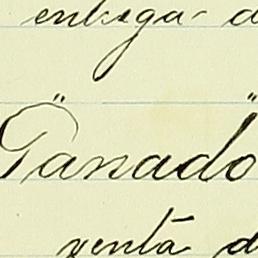 entrega d
"Panadó"
venta d